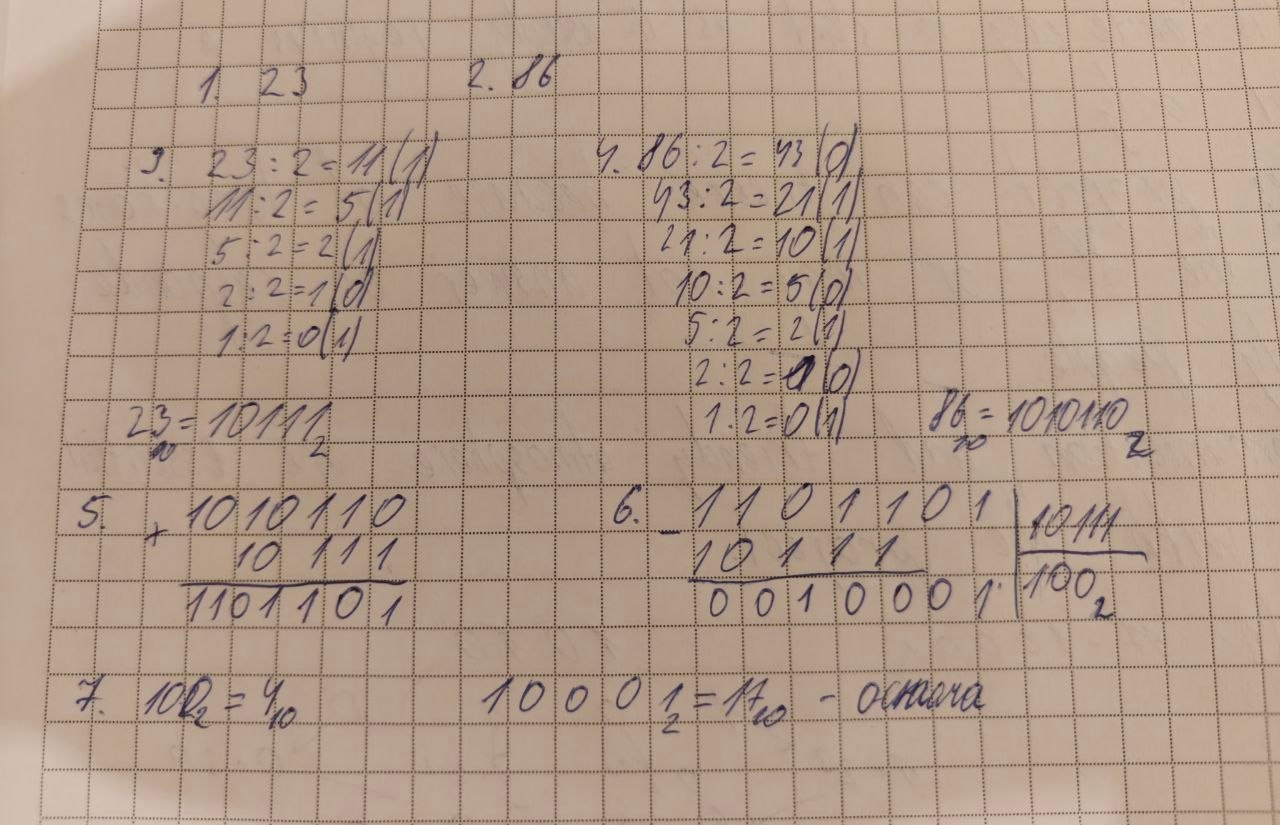 1. 23
2. 86
3. 23:2=11(1)
11:2=5(1)
5:2=2(1)
2:2=1(0)
1:2=0(1)
23₁₀=10111₂
4. 86:2=43(0)
43:2=21(1)
21:2=10(1)
10:2=5(0)
5:2=2(1)
2:2=1(0)
1:2=0(1)
86₁₀=1010110₂
5. 1010110
+ 10111
1101101
6. - 1101101 | 10111
10111 | 100₂
0010001
7. 100₂=4₁₀
10001₂=17₁₀ - остача